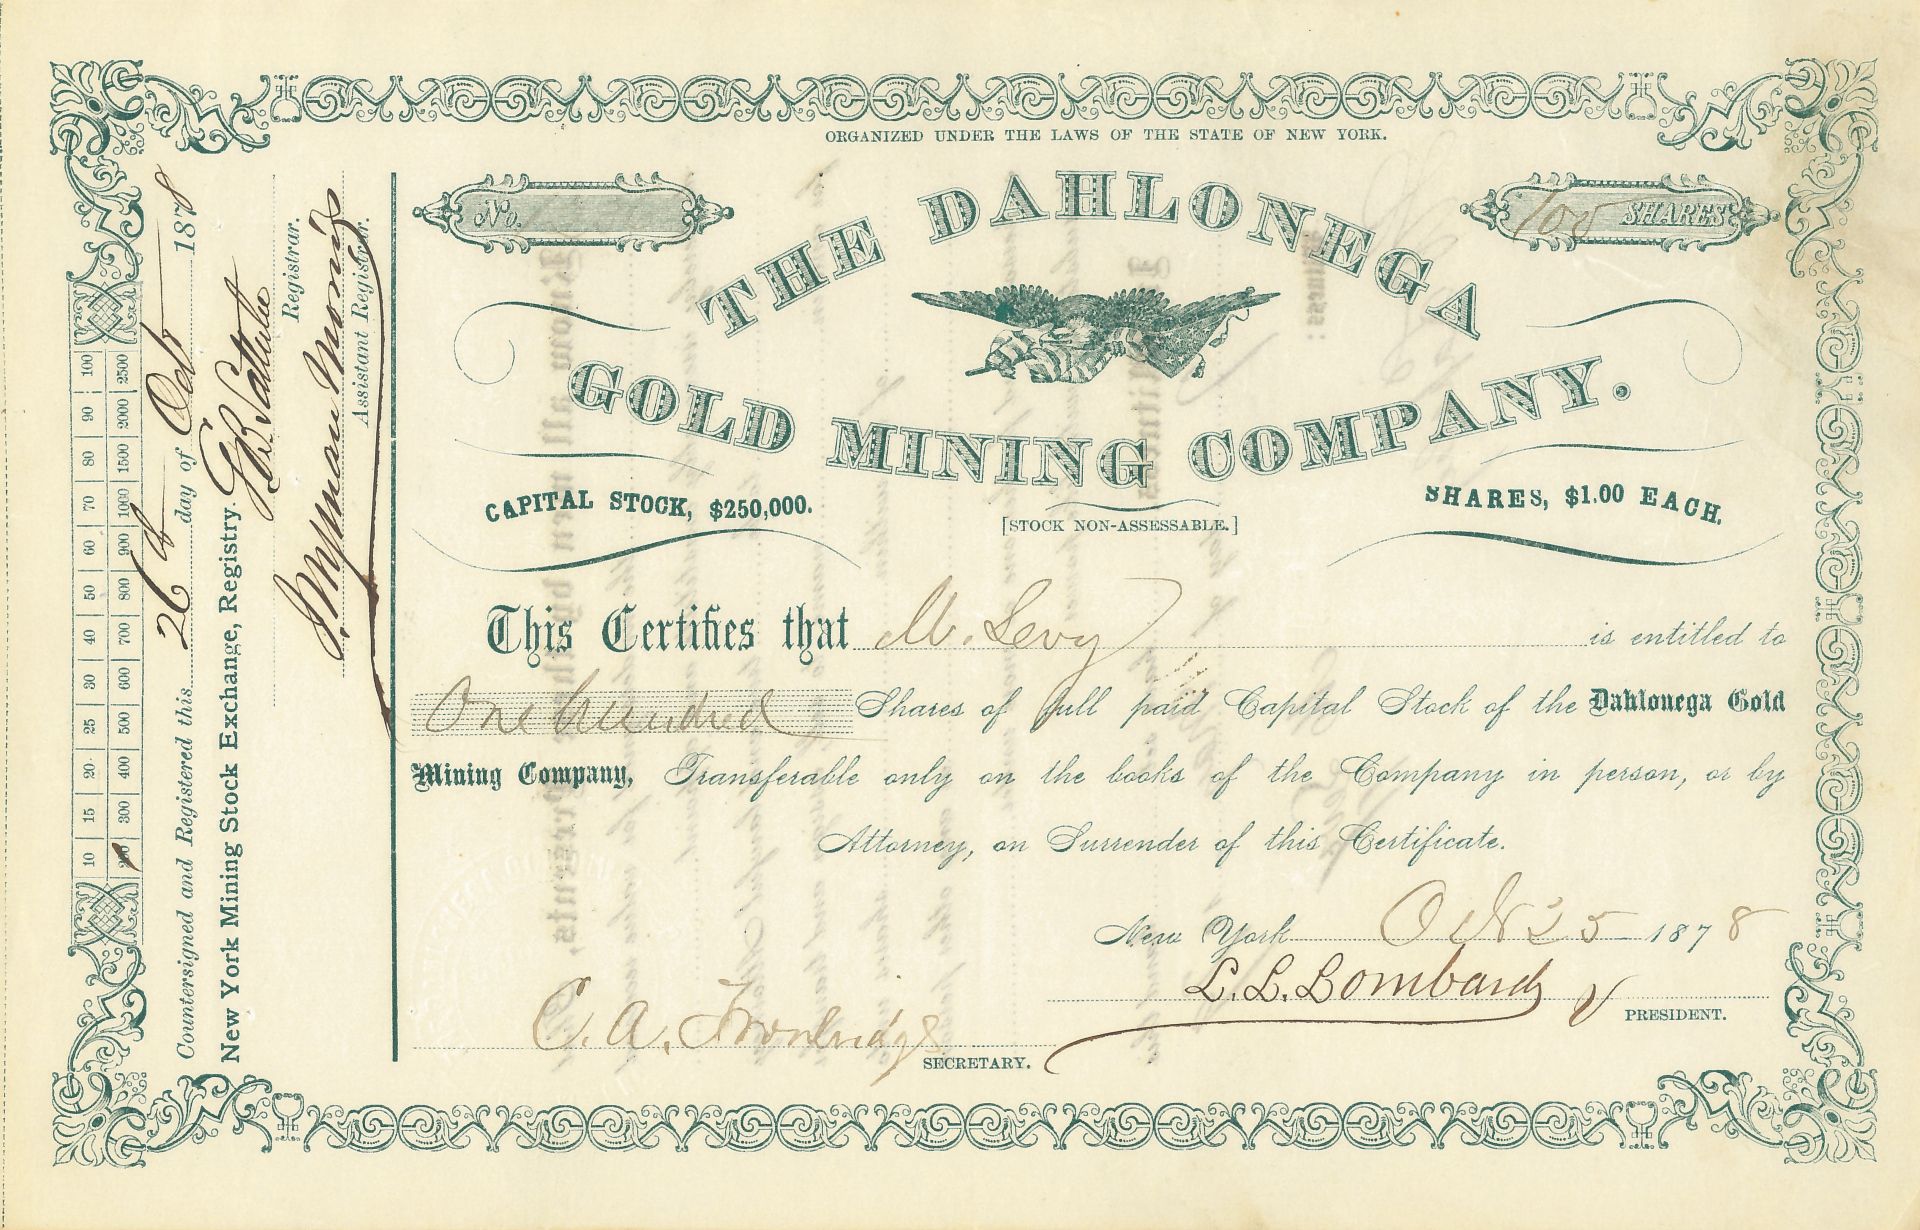 ORGANIZED UNDER THE LAWS OF THE STATE OF NEW YORK.
No.
100 SHARES
THE DAHLONEGA
GOLD MINING COMPANY.
CAPITAL STOCK, $250,000.
[STOCK NON-ASSESSABLE.]
SHARES, $1.00 EACH.
This Certifies that M. Levy is entitled to
One hundred Shares of full paid Capital Stock of the Dahlonega Gold
Mining Company, Transferable only on the books of the Company in person, or by
Attorney, on Surrender of this Certificate.
New York Oct 25 1878
L. L. Lombard
PRESIDENT.
C. A.
SECRETARY.
10 15 20 25 30 40 50 60 70 80 90 100
200 300 400 500 600 700 800 900 1000 1500 2000 2500
Countersigned and Registered this 26th day of Oct 1878
New York Mining Stock Exchange, Registry.
Registrar.
Assistant Registrar.